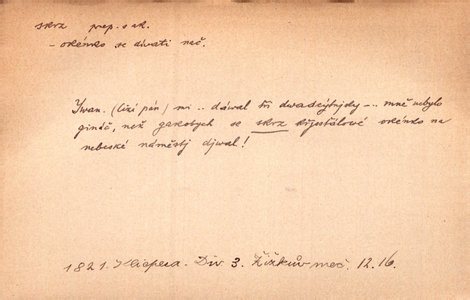 skrz prep. s ak.
– okénko se dívati nač.
Ywan. (cizí pán) mi .. dáwal tři dwacýtnjdy –.. mně nebylo
gináč, než gakobych se skrz křysstálowé okénko na
nebeské náměstj djwal!
1821. Klicpera. Div 3. Žižkův meč. 12.16.